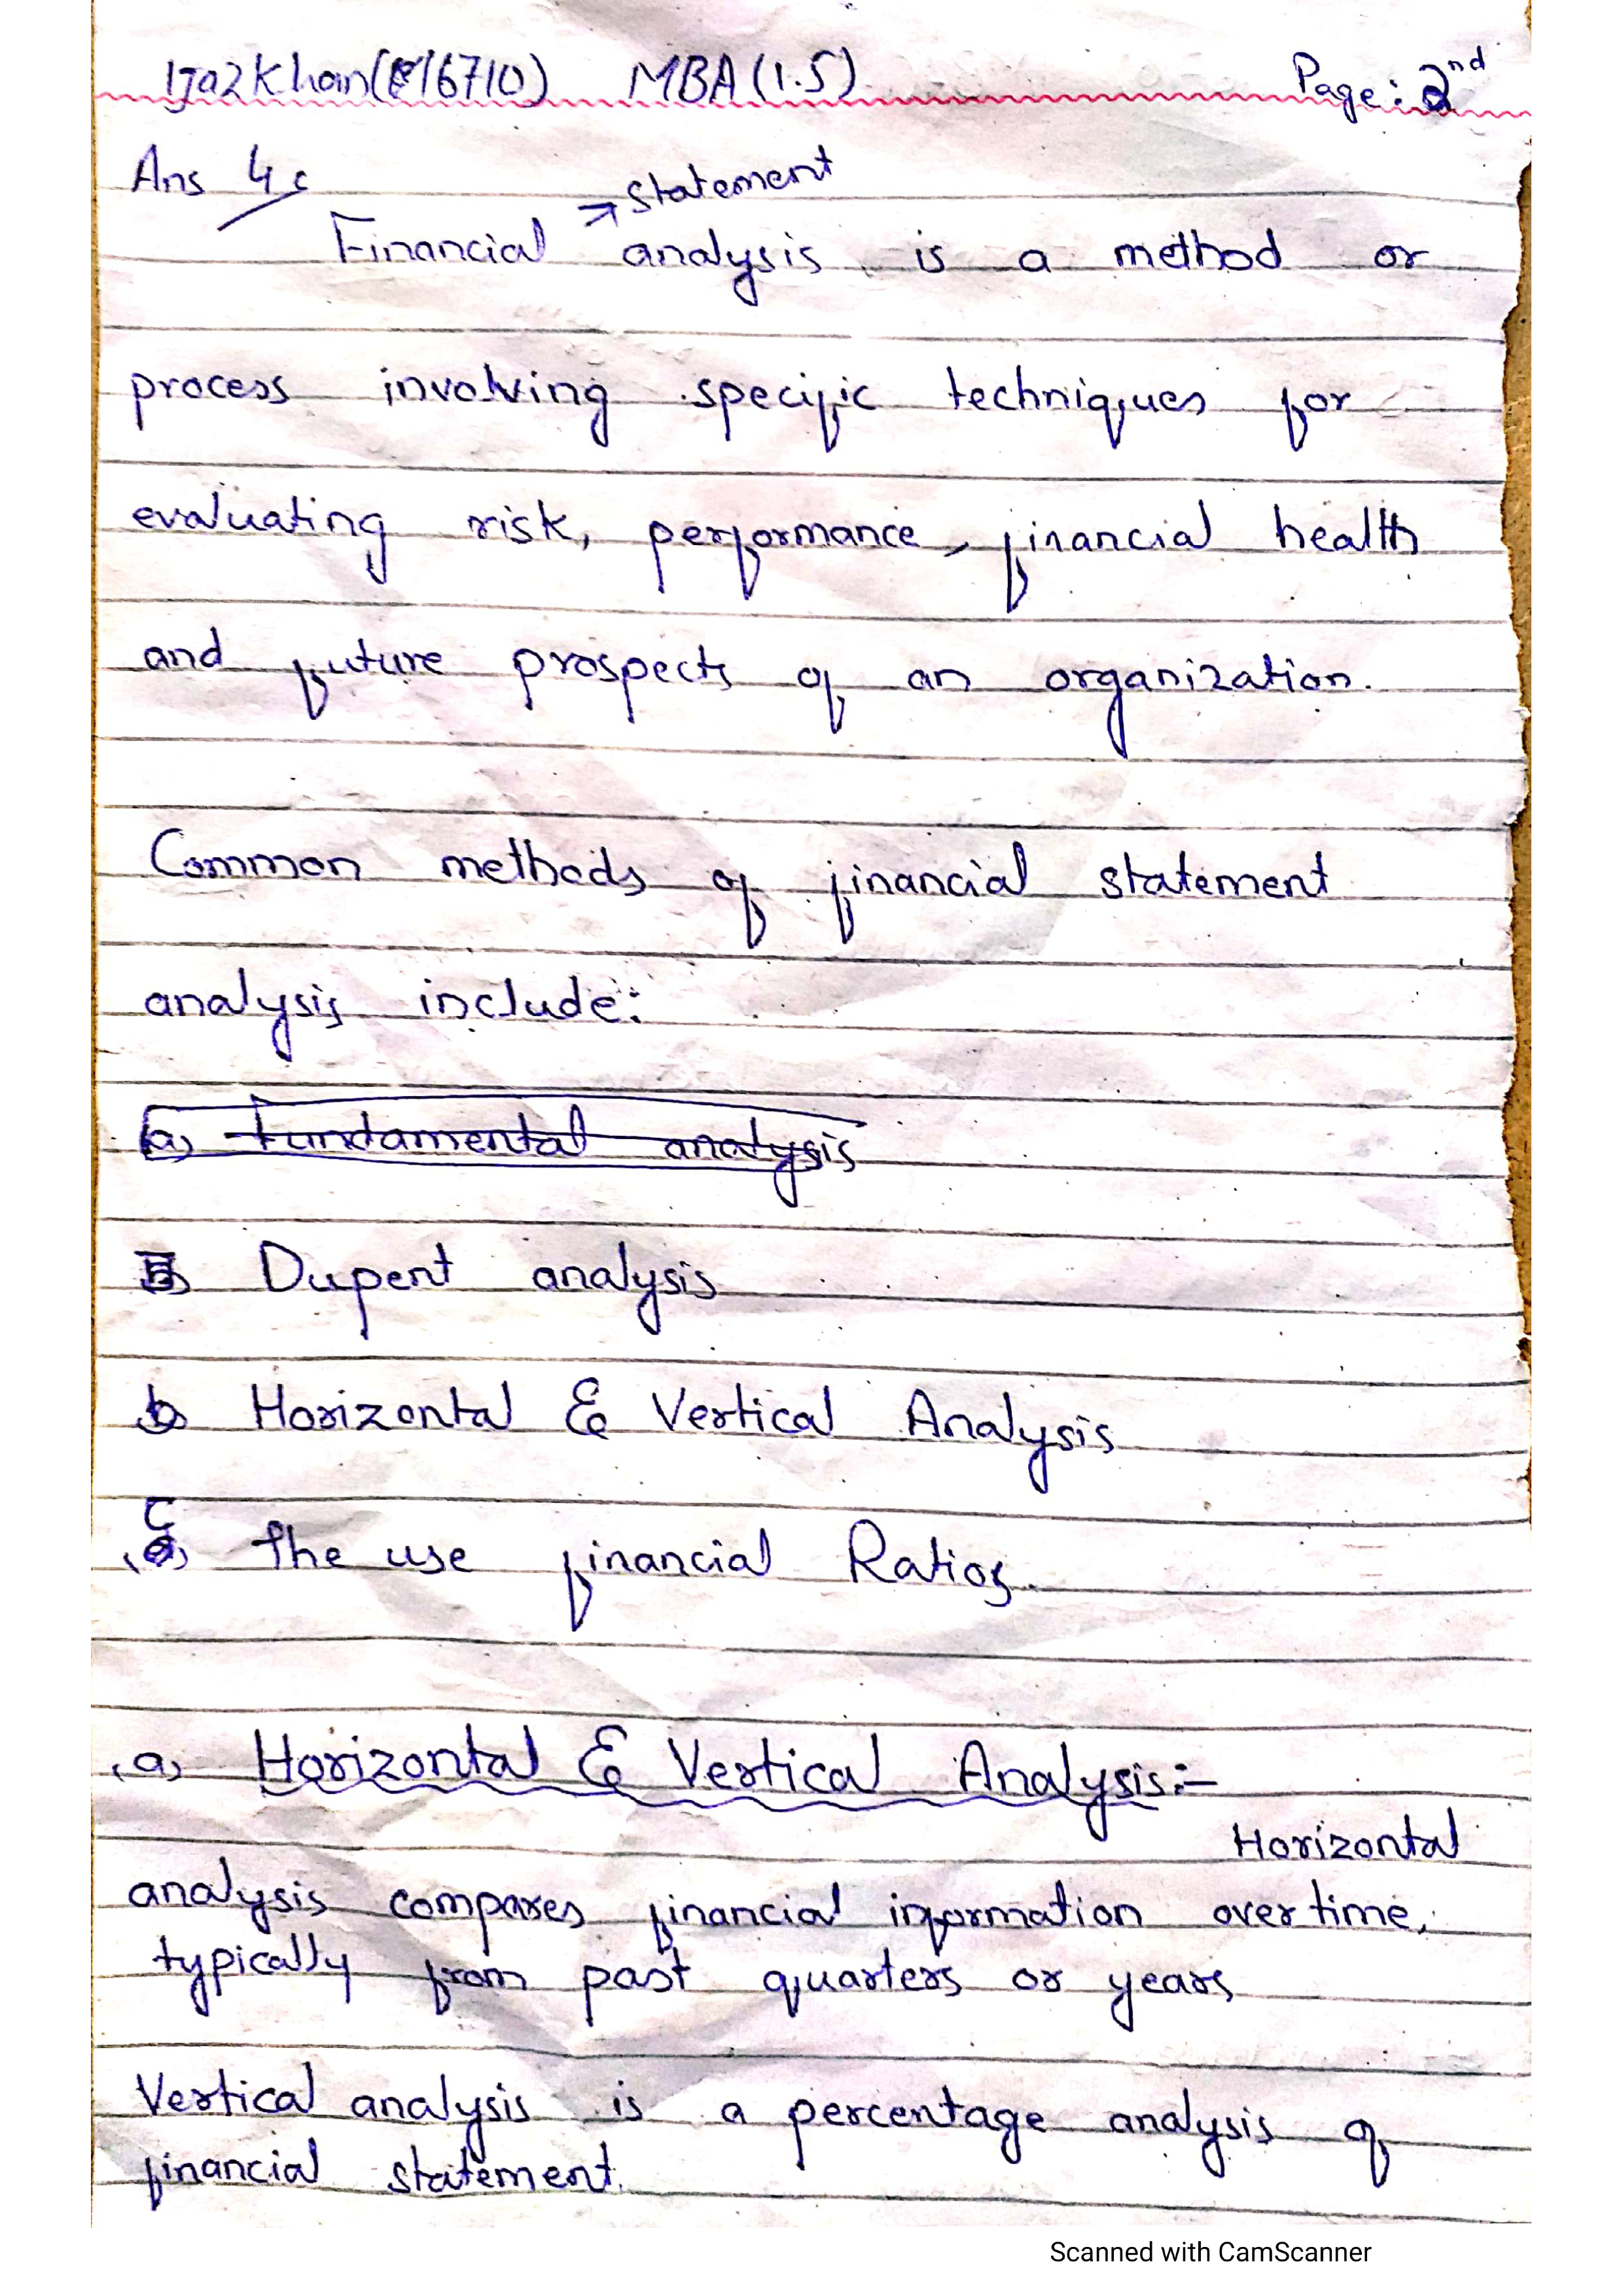 IjazKhan(16710) MBA(1.5) Page: 2nd
Ans 4:
statement
Financial analysis is a method or
process involving specific techniques for
evaluating risk, performance, financial health
and future prospects of an organization.
Common methods of financial statement
analysis include:
(a) Fundamental analysis
Dupent analysis
b) Horizontal & Vertical Analysis
(c) The use financial Ratios.
(a) Horizontal & Vertical Analysis:-
Horizontal
analysis compares financial information over time,
typically from past quarters or years
Vertical analysis is a percentage analysis of
financial statement.
Scanned with CamScanner